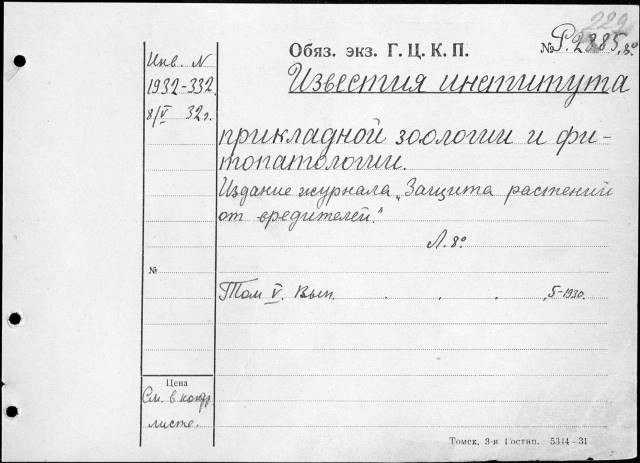 229
Обяз. экз. Г. Ц. К. П.
№ Р. 2885, 8º
Инв. N
1932-332
8/V 32 г.
Известия института
прикладной зоологии и фи-
топатологии.
Издание журнала „Защита растений
от вредителей."
Л. 8º
№
Том V. Вып. . . . , 5-1930.
Цена
См. в контр.
листе.
Томск, 3-я Гостип. 5344-31